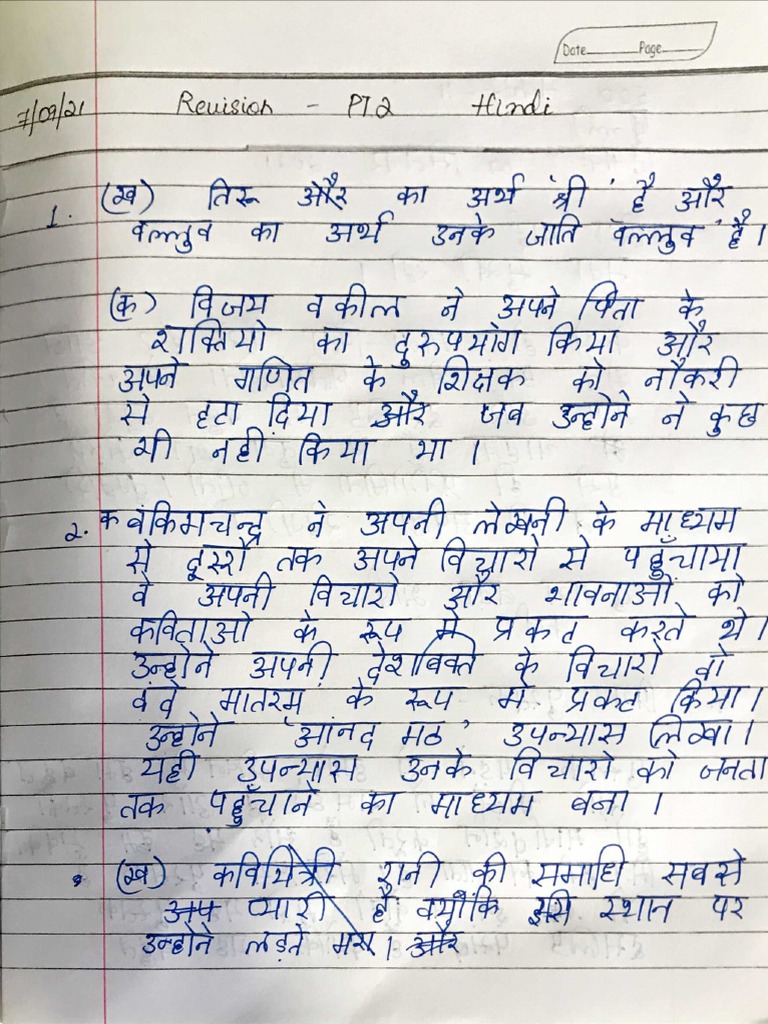 Date Page
7/09/21 Revision - PT.2 Hindi
1. (ख) तिरू और का अर्थ 'श्री' है और
वल्लुव का अर्थ उनके जाति वल्लुव है।
(क) विजय वकील ने अपने पिता के
शक्तियो का दुरुपयोग किया और
अपने गणित के शिक्षक को नौकरी
से हटा दिया और जब उन्होने ने कुछ
भी नही किया था।
2. क बंकिमचन्द्र ने अपनी लेखनी के माध्यम
से दूसरो तक अपने विचारो से पहुँचाया
वे अपनी विचारो और भावनाओ को
कविताओ के रूप मे प्रकट करते थे।
उन्होने अपनी देशभक्ति के विचारो को
वंदे मातरम् के रूप मे प्रकट किया।
उन्होने 'आंनद मठ' उपन्यास लिखा।
यही उपन्यास उनके विचारो को जनता
तक पहुँचाने का माध्यम बना।
(ख) कवियित्री रानी की समाधि सबसे
अप प्यारी है क्योंकि इसी स्थान पर
उन्होने लड़ते मरा। और